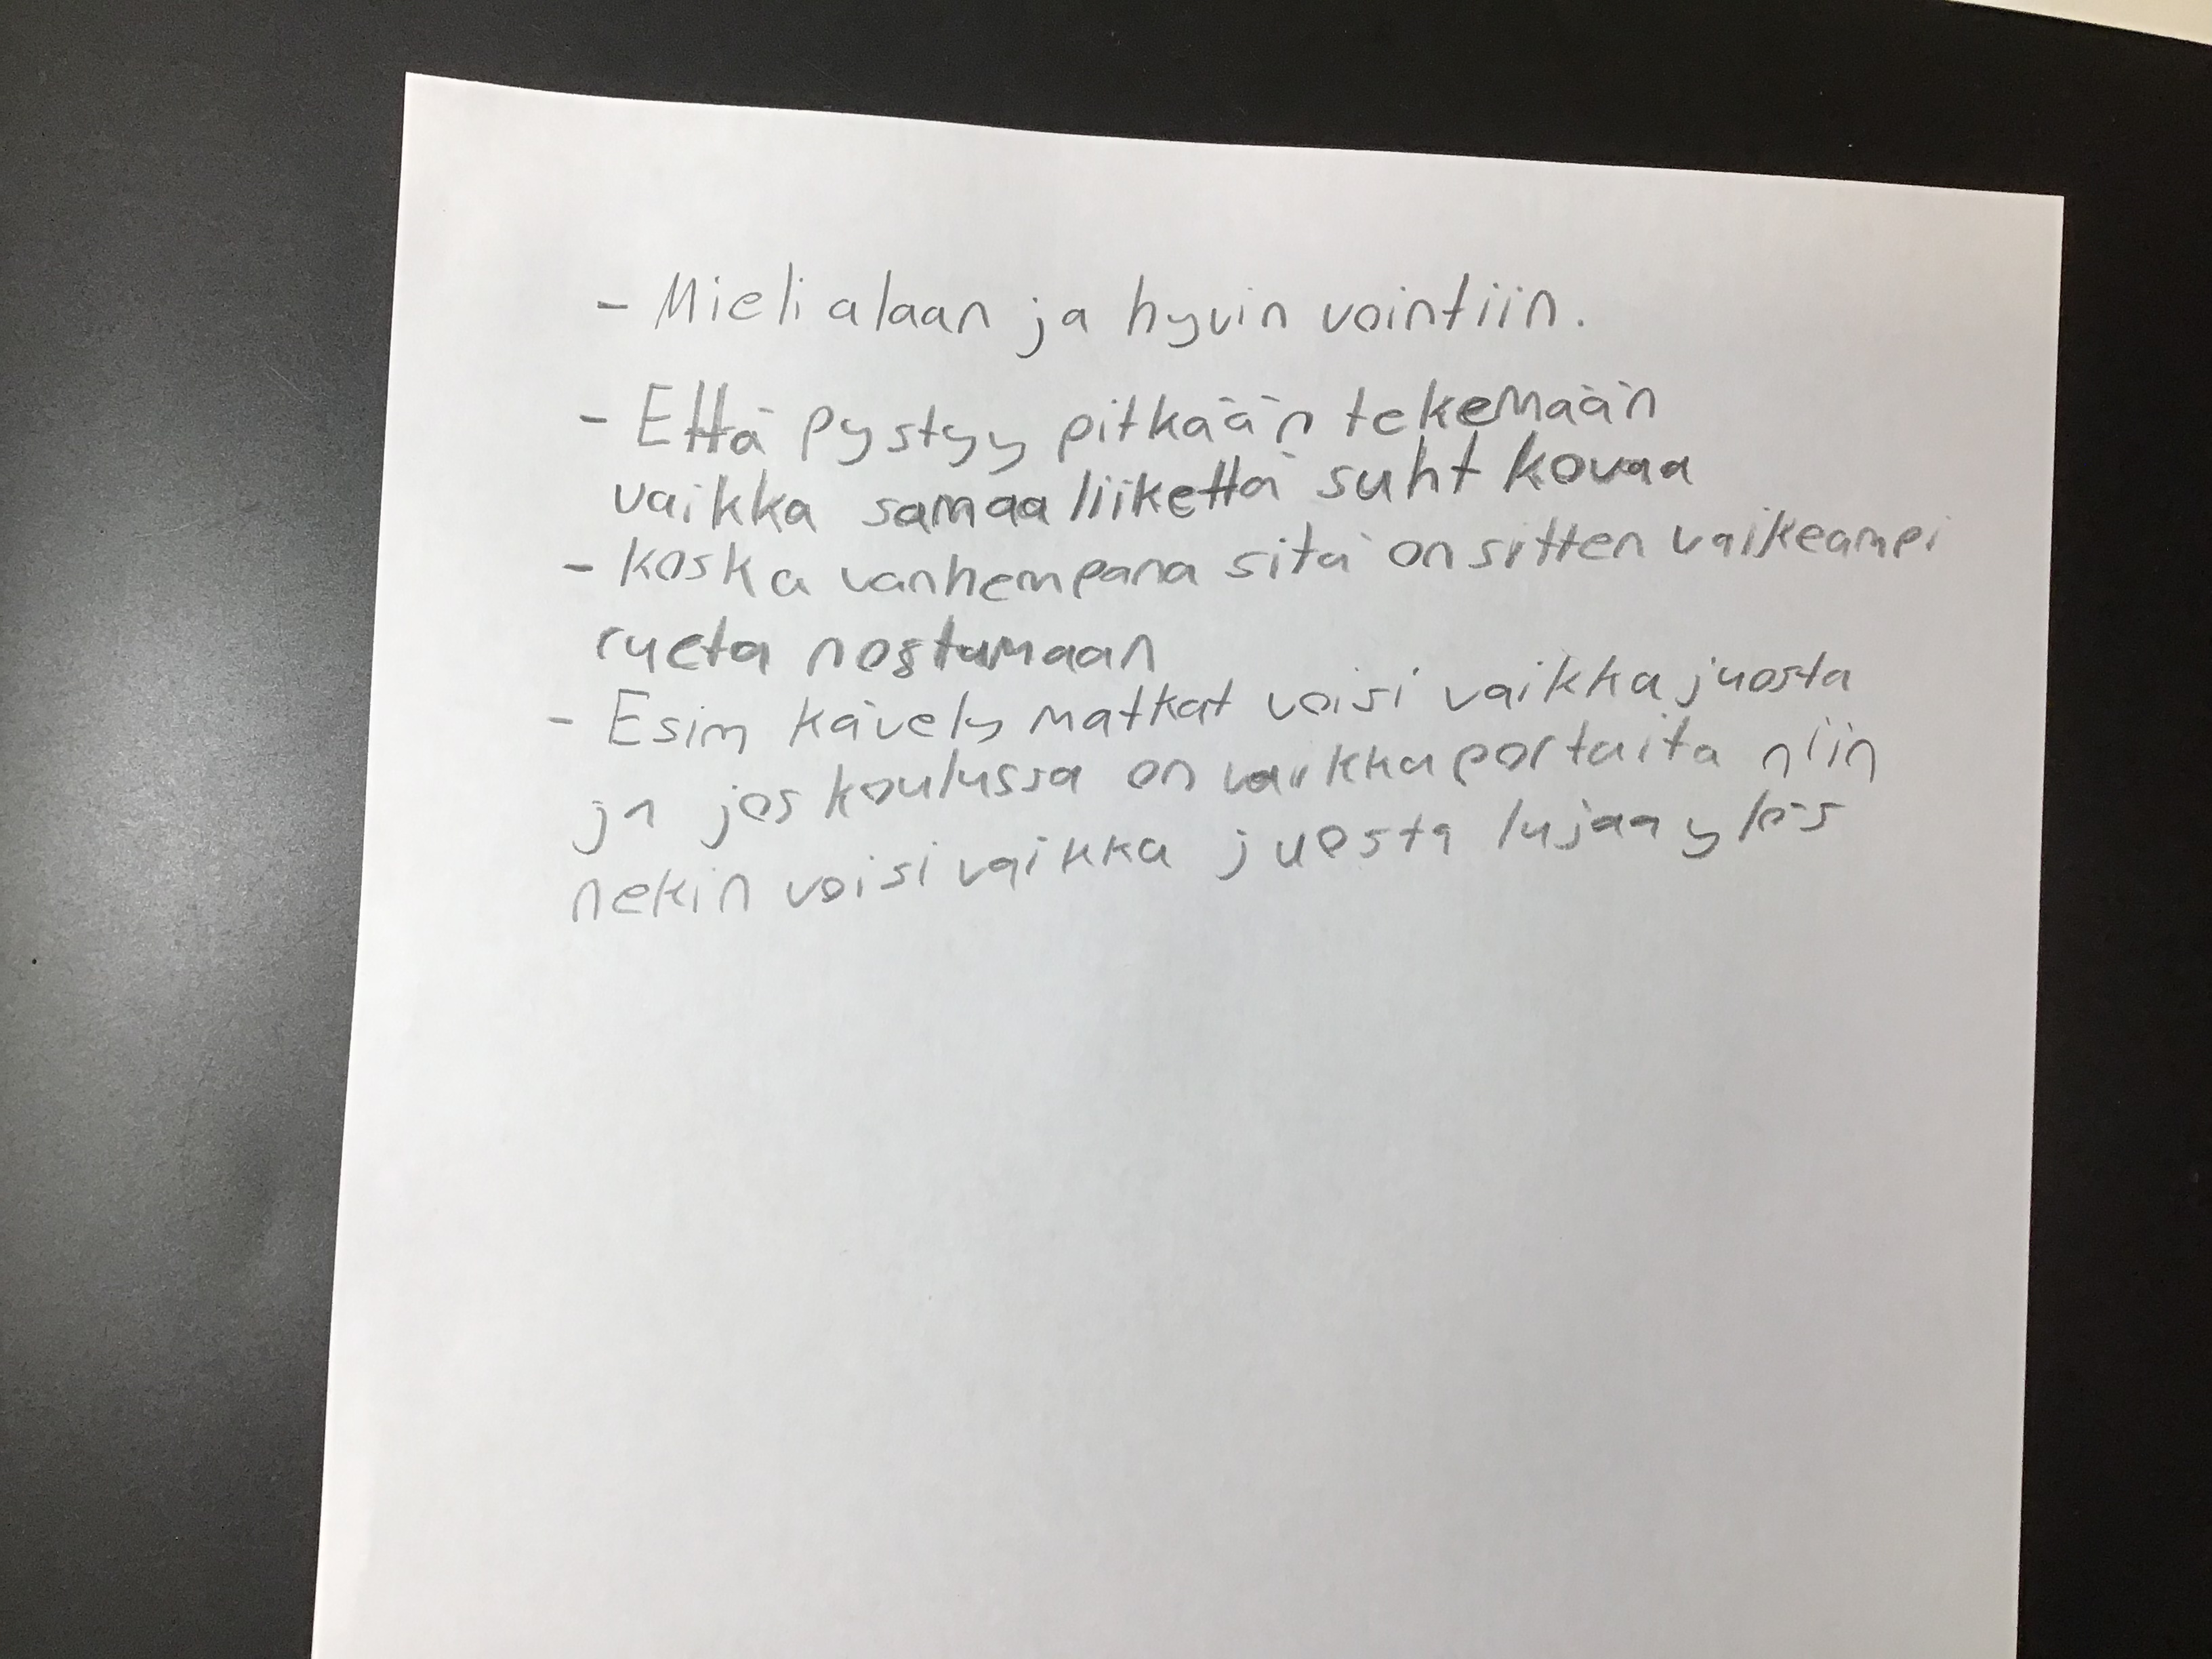 - Mieli alaan ja hyvin vointiin.
- Että pystyy pitkään tekemään
vaikka samaa liikettä suht kovaa
- Koska vanhempana sitä on sitten vaikeampi
rueta nostumaan
- Esim kävely matkat voisi vaikka juosta
ja jos koulussa on vaikka portaita niin
nekin voisi vaikka juosta lujaa ylös